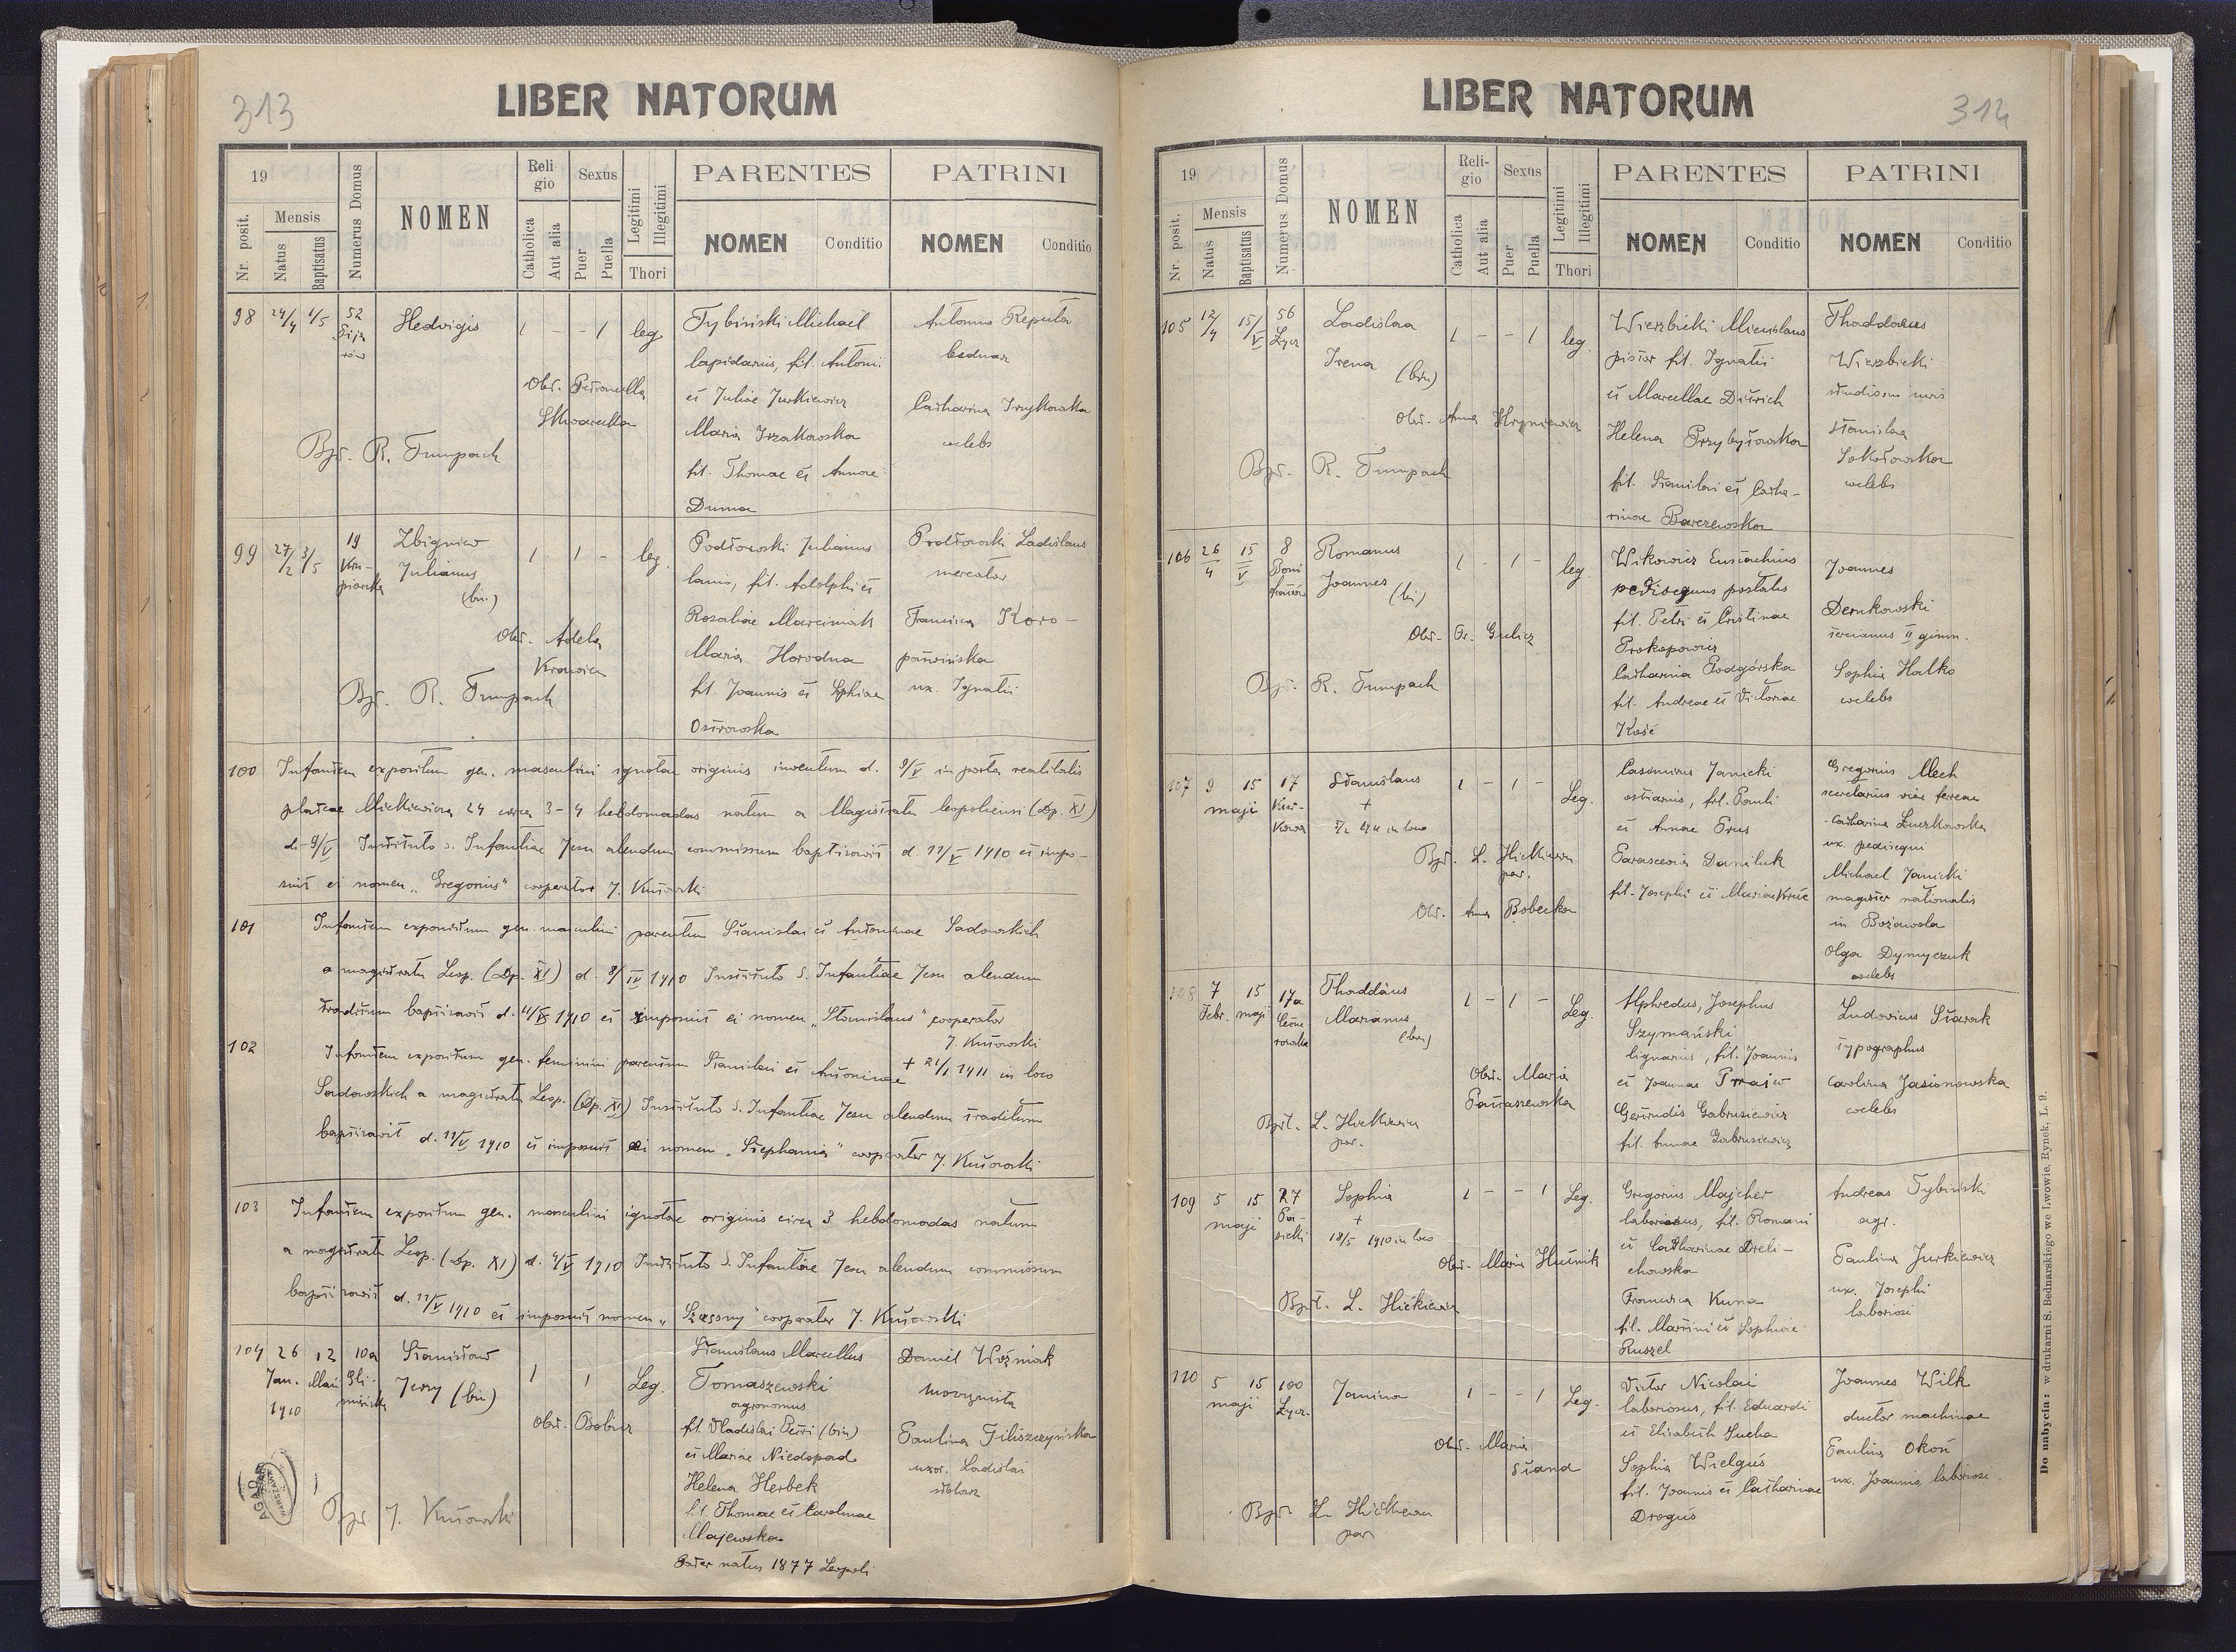 313
LIBER NATORUM
19
Nr. posit.
Mensis
Natus
Baptisatus
Numerus Domus
NOMEN
Reli-
gio
Catholica
Aut alia
Sexus
Puer
Puella
Legitimi
Illegitimi
Thori
PARENTES
NOMEN
Conditio
PATRINI
NOMEN
Conditio
98 24/4 1/5 52
Hedvigis
1 - - 1 leg
Obst. Petronella
Bpt. R. Trumpach
Tybiński Michael
lapidarius, fil. Antonii
et Juliae Jurkiewicz
Maria
fil. Thomae et Annae
Duma
Antonius Reputa
bednarz
Catharina
caelebs
99 27/2 3/5 19
Zbigniew
Julianus
(bin.)
1 - 1 - leg.
Obst. Adela
Bpt. R. Trumpach
Julianus
lanio, fil. Adolphi et
Rosaliae Marciniak
Maria Horodna
fil. Joannis et Sophiae
Ostrowska
Ladislaus
mercator
Francisca Koro-
ux. Ignatii
100 Infantem expositum gen. masculini ignotae originis inventum d. 9/V in porta realitatis
plateae Mickiewicza 24 circa 3-4 hebdomadas natum a Magistratu leopoliensi (Dp. XI)
d. 9/V Instituto s. Infantiae Jesu alendum commissum baptizavit d. 12/V 1910 et impo-
suit ei nomen „Gregorius" cooperator J. Kutowski
101 Infantem expositum gen. masculini parentum Stanislai et Antoninae Sadowskich
a magistratu Leop. (Dp. XI) d. 8/IV 1910 Instituto S. Infantiae Jesu alendum
traditum baptizavit d. 12/V 1910 et imposuit ei nomen „Stanislaus" cooperator
J. Kutowski
102 Infantem expositum gen. feminini parentum Stanislai et Antoninae + 21/1 1911 in loco
Sadowskich a magistratu Leop. (Dp. XI) Instituto S. Infantiae Jesu alendum traditum
baptizavit d. 12/V 1910 et imposuit ei nomen „Stephania" cooperator J. Kutowski
103 Infantem expositum gen. masculini ignotae originis circa 3 hebdomadas natum
a magistratu Leop. (Dp. XI) d. 4/V 1910 Instituto S. Infantiae Jesu alendum commissum
baptizavit d. 12/V 1910 et imposuit nomen „Szczęsny" cooperator J. Kutowski
104 26 12 10a
Jan. Maii
1910
Stanisław
Jerzy (bin)
1 1 Leg.
Obst. Bobisz
Bpt. J. Kutowski
Stanislaus Marcellus
Tomaszewski
agronomus
fil. Vladislai Petri (bin)
et Mariae Niedopad
Helena Herbek
fil. Thomae et Carolinae
Majewska
Pater natus 1877 Leopoli
Daniel Woźniak
maszynista
Paulina Filiszczyńska
uxor. Ladislai
AGAD
WARSZAWA
314
LIBER NATORUM
19
Nr. posit.
Mensis
Natus
Baptisatus
Numerus Domus
NOMEN
Reli-
gio
Catholica
Aut alia
Sexus
Puer
Puella
Legitimi
Illegitimi
Thori
PARENTES
NOMEN
Conditio
PATRINI
NOMEN
Conditio
105 12/4 15/V 56
Łycz
Ladislaa
Irena
(bin)
1 - - 1 leg.
Obst. Anna Hryniewicz
Bpt. R. Trumpach
Wierzbicki Miecislaus
pistor fil. Ignatii
et Marcellae Ditrich
Helena Przybyłowska
fil. Stanislai et Catha-
rinae Barczewska
Thaddaeus
Wierzbicki
studiosus iuris
Stanislaa
Sokołowska
caelebs
106 26/4 15/V 8
Romanus
Joannes (bi)
1 - 1 - leg.
Obst. Gulicz
Bpt. R. Trumpach
Witkowicz Eustachius
pedisequus postalis
fil. Petri et Cristinae
Prokopowicz
Catharina Podgórska
fil. Andreae et Victoriae
Kość
Joannes
Dernkowski
tercianus II gimn.
Sophia Halko
caelebs
107 9 15 17
maji
Stanislaus
+
in loco
1 - 1 - Leg.
Bpt. L. Hickiewicz
par.
Obst. Anna Bobecka
Casimirus Janicki
ostiarius, fil. Pauli
et Annae Prus
Parascevia Daniluk
fil. Josephi et Mariae
Gregorius Mech
secretarius viae ferreae
Catharina Żurkowska
ux. pedisequi
Michael Janicki
magister nationalis
in Bożawola
Olga Dymyczuk
caelebs
108 7 15 17a
Febr. maji
Thaddäus
Marianus
(bin)
1 - 1 - Leg.
Obst. Maria
Pataszewska
Bpt. L. Hickiewicz
par.
Alphredus, Josephus
Szymański
lignarius, fil. Joannis
et Joannae
Gertrudis Gabrusiewicz
fil. Annae Gabrusiewicz
Ludovicus Siwak
typographus
Carolina Jasionowska
caelebs
109 5 15 27
maji
Sophia
+
18/5 1910 in loco
1 - - 1 Leg.
Obst. Maria Hutnik
Bpt. L. Hickiewicz
Gregorius Majcher
laboriosus, fil. Romani
et Catharinae Dreli-
chowska
Francisca Kuna
fil. Martini et Sophiae
Ruszel
Andreas Tybinski
agr.
Paulina Jurkiewicz
ux. Josephi
laboriosi
110 5 15 100
maji Łycz.
Janina
1 - - 1 Leg.
Obst. Maria
Stand
Bpt. L. Hickiewicz
par
Victor Nicolai
laboriosus, fil. Eduardi
et Elisabeth Sucha
Sophia Wielgus
fil. Joannis et Catharinae
Drogus
Joannes Wilk
ductor machinae
Paulina Okoń
ux. Joannis laboriosi.
Do nabycia: w drukarni S. Bednarskiego we Lwowie, Rynek, L. 9.